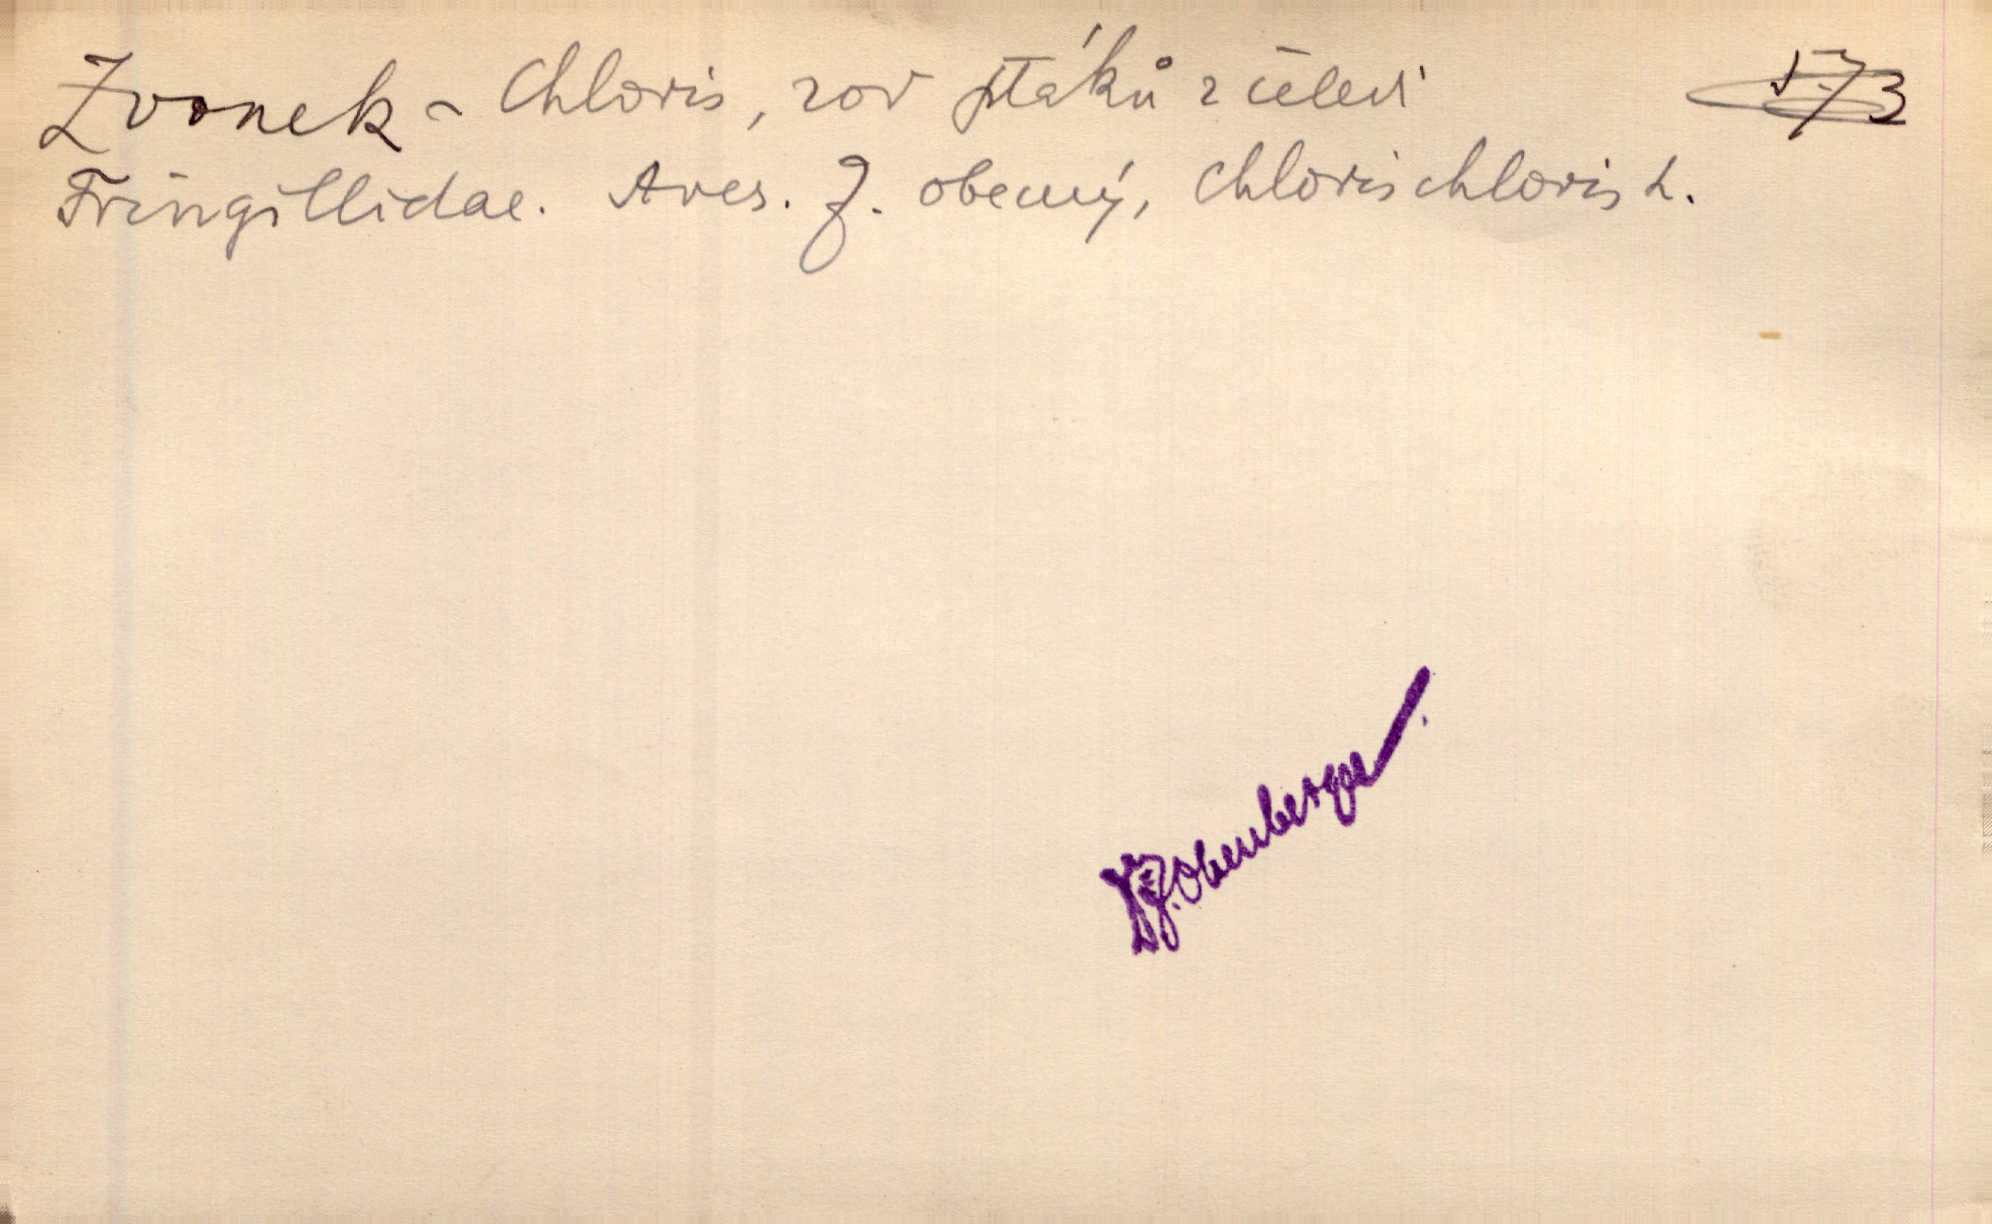 Zvonek - Chloris, rod ptáků z čeledi
573
Fringillidae. Aves. Z. obecný, Chloris chloris L.
J. Obenberger